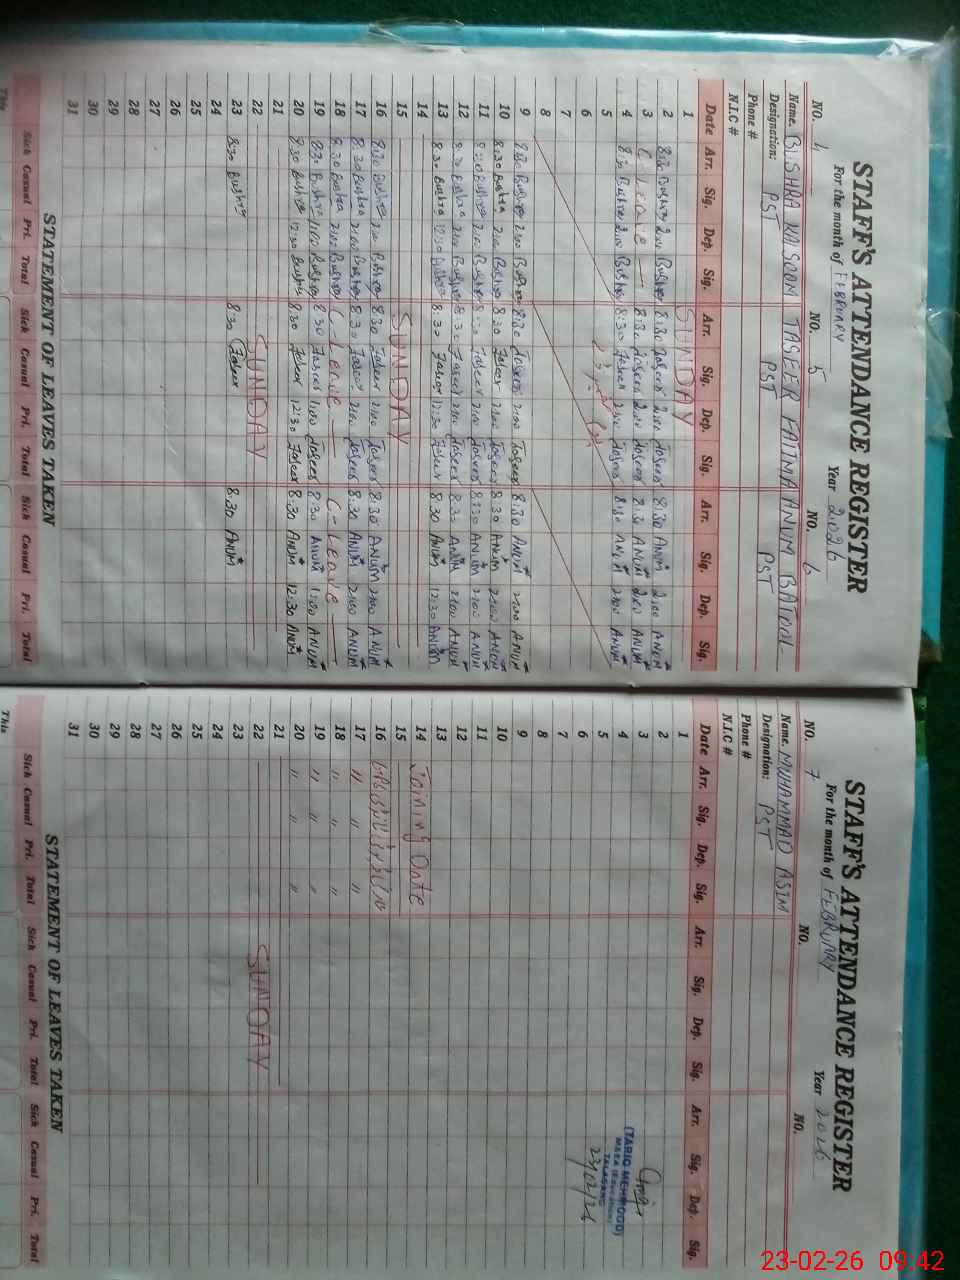 STAFF'S ATTENDANCE REGISTER
For the month of FEBRUARY Year 2026
NO. 4 NO. 5 NO. 6
Name. BUSHRA KALSOOM TASEER FATIMA ANUM BATOOL
Designation: PST PST PST
Phone #
N.I.C #
Date Arr. Sig. Dep. Sig. Arr. Sig. Dep. Sig. Arr. Sig. Dep. Sig.
1 SUNDAY
2 8:30 Bushra 2:00 Bushra 8:30 Taseer 2:00 Taseer 8:30 ANUM 2:00 ANUM
3 C. Leave 8:30 Taseer 2:00 Taseer 8:30 ANUM 2:00 ANUM
4 8:30 Bushra 2:00 Bushra 8:30 Taseer 2:00 Taseer 8:30 ANUM 2:00 ANUM
5
6
7
8
9 8:30 Bushra 2:00 Bushra 8:30 Taseer 2:00 Taseer 8:30 ANUM 2:00 ANUM
10 8:30 Bushra 2:00 Bushra 8:30 Taseer 2:00 Taseer 8:30 ANUM 2:00 ANUM
11 8:30 Bushra 2:00 Bushra 8:30 Taseer 2:00 Taseer 8:30 ANUM 2:00 ANUM
12 8:30 Bushra 2:00 Bushra 8:30 Taseer 2:00 Taseer 8:30 ANUM 2:00 ANUM
13 8:30 Bushra 12:30 Bushra 8:30 Taseer 12:30 Taseer 8:30 ANUM 12:30 ANUM
14
15 SUNDAY
16 8:30 Bushra 2:00 Bushra 8:30 Taseer 2:00 Taseer 8:30 ANUM 2:00 ANUM
17 8:30 Bushra 2:00 Bushra 8:30 Taseer 2:00 Taseer 8:30 ANUM 2:00 ANUM
18 8:30 Bushra 2:00 Bushra C-Leave C-Leave
19 8:30 Bushra 1:00 Bushra 8:30 Taseer 1:00 Taseer 8:30 ANUM 1:00 ANUM
20 8:30 Bushra 12:30 Bushra 8:30 Taseer 12:30 Taseer 8:30 ANUM 12:30 ANUM
21
22 SUNDAY
23 8:30 Bushra 8:30 Taseer 8:30 ANUM
24
25
26
27
28
29
30
31
Sick Casual Pri. Total Sick Casual Pri. Total Sick Casual Pri. Total
STATEMENT OF LEAVES TAKEN
This
STAFF'S ATTENDANCE REGISTER
For the month of FEBRUARY Year 2026
NO. 7 NO. NO.
Name. MUHAMMAD ASIM
Designation: PST
Phone #
N.I.C #
Date Arr. Sig. Dep. Sig. Arr. Sig. Dep. Sig. Arr. Sig. Dep. Sig.
1
2
3
4 (TARIQ MEHMOOD)
M&EA (Education)
5 TALAGANG
23/02/26
6
7
8
9
10
11
12
13
14 Joining Date
15
16
17 〃 〃 〃 〃
18 〃 〃 〃 〃
19 〃 〃 〃 〃
20 〃 〃 〃 〃
21
22 SUNDAY
23
24
25
26
27
28
29
30
31
Sick Casual Pri. Total Sick Casual Pri. Total Sick Casual Pri. Total
STATEMENT OF LEAVES TAKEN
This
23-02-26 09:42